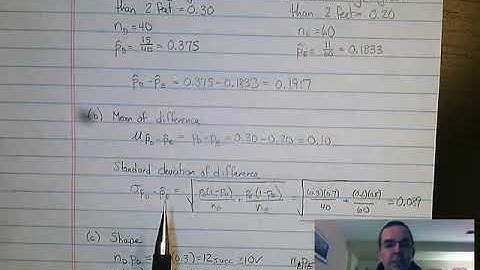 than 2 feet = 0.30
than 2 feet = 0.20
n_D = 40
n_E = 60
p̂_D = 15/40 = 0.375
p̂_E = 11/60 = 0.1833
p̂_D - p̂_E = 0.375 - 0.1833 = 0.1917
(b) Mean of difference
μ_p̂_D-p̂_E = p_D - p_E = 0.30 - 0.20 = 0.10
Standard deviation of difference
σ_p̂_D-p̂_E = √(p_D(1-p_D)/n_D + p_E(1-p_E)/n_E) = √((0.3)(0.7)/40 + (0.2)(0.8)/60) = 0.089
(c) Shape
n_D p_D = (0.3) = 12 succ = 10✓